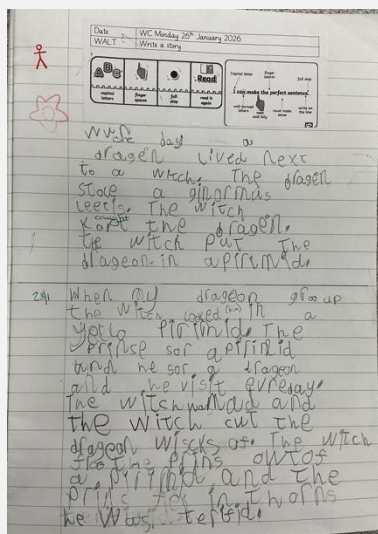 Date WC Monday 26th January 2026
WALT Write a story
ABC Read
capital letters finger spaces full stop read it again
Capital letter finger spaces full stop
I can make the perfect sentence.
well-formed letters must make sense write on the line
day a
dragen lived next
to a witch. The dragen
stole a ginormus
The witch
caught the dragen.
te witch put the
drageon. in a pirimid.
When my drageon groo up
the witch in a
The
Prinse sor a pirimid
and he sor a drageon
and he visit evreday.
The witch was mad and
the witch cut the
drageon wiscks of. The witch
the Prins owt of
a pirimid and the
prins in thorns
he was terfid.